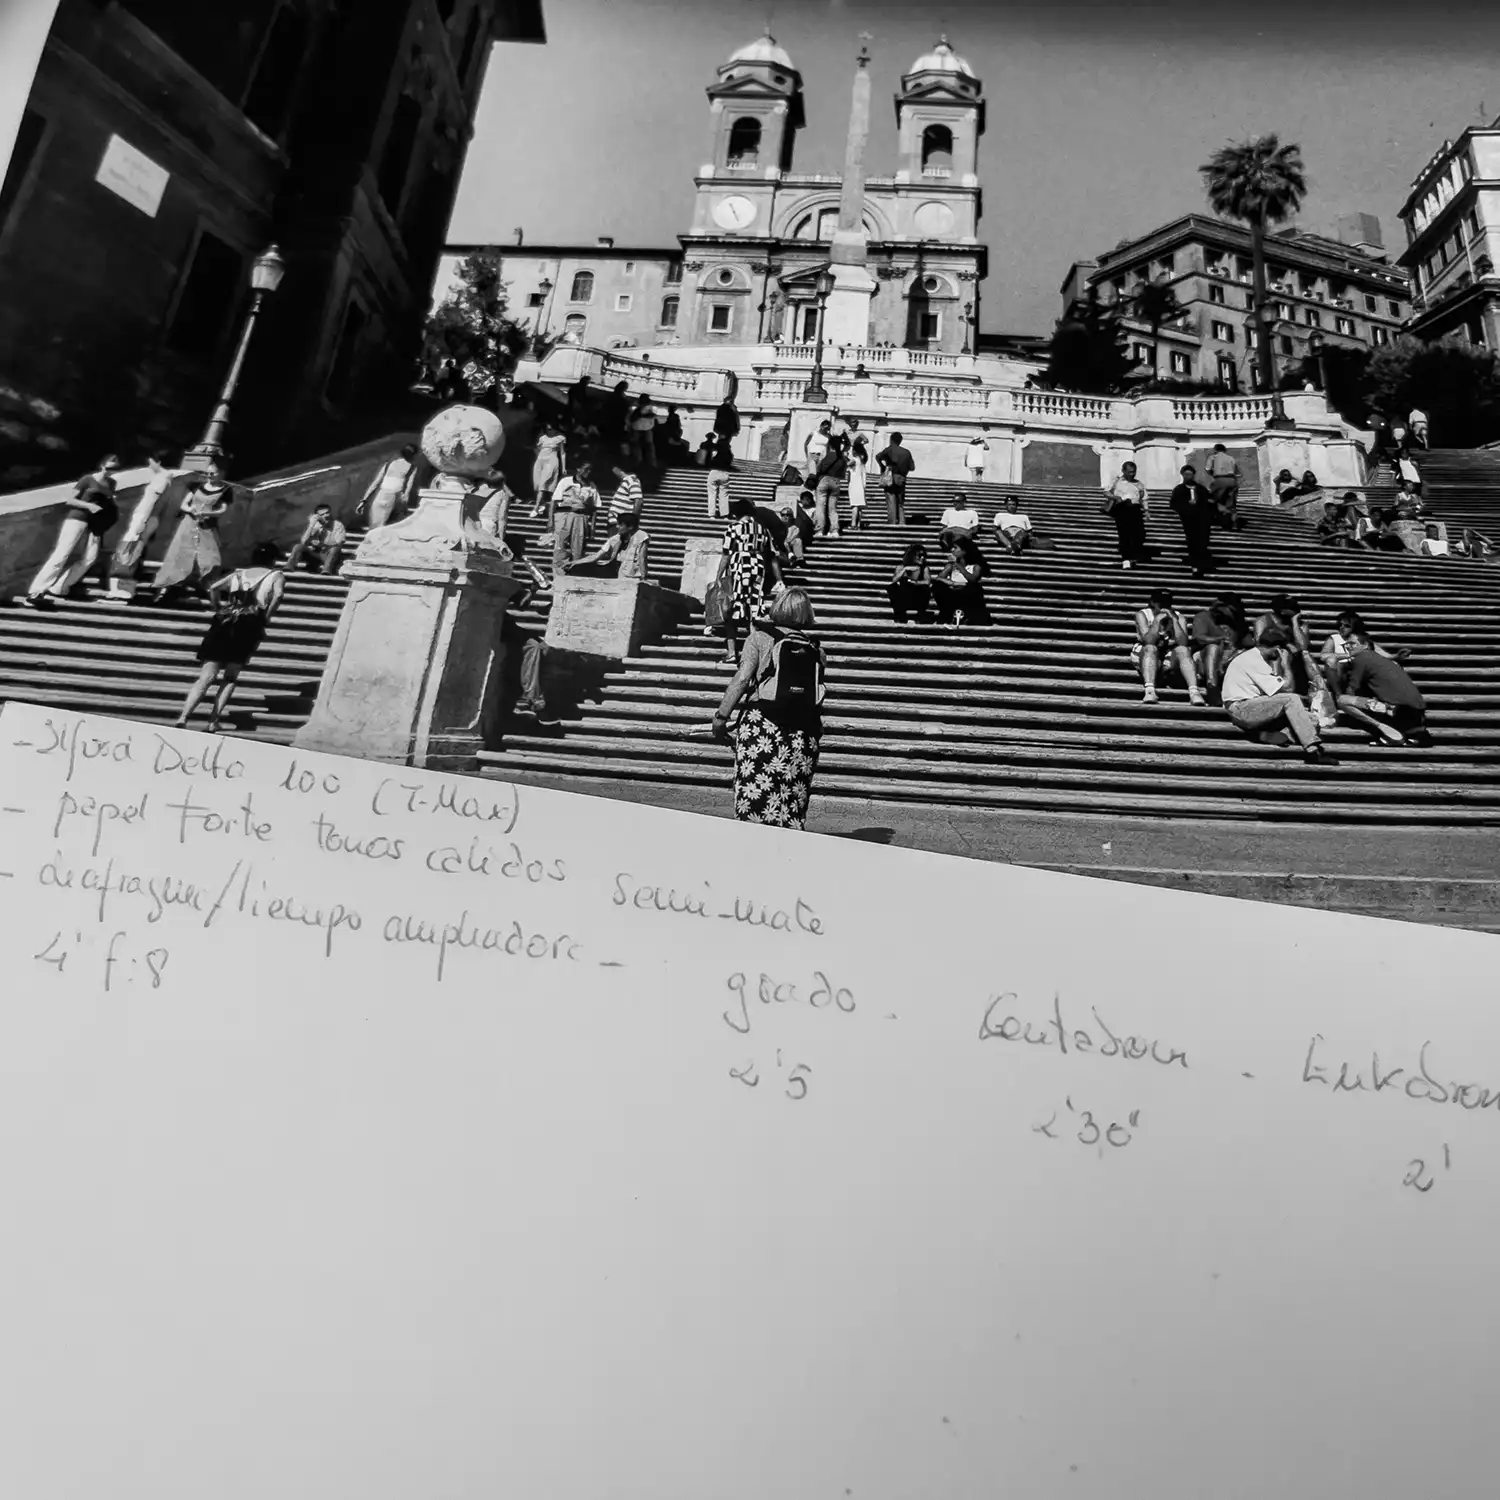 - Ilford Delta 100 (T-Max)
- papel Forte tonos calidos semi-mate
- diafragma/tiempo ampliadora - grado. Centabrom. Emkabrom
4' f:8 2'5 2'30" 2'